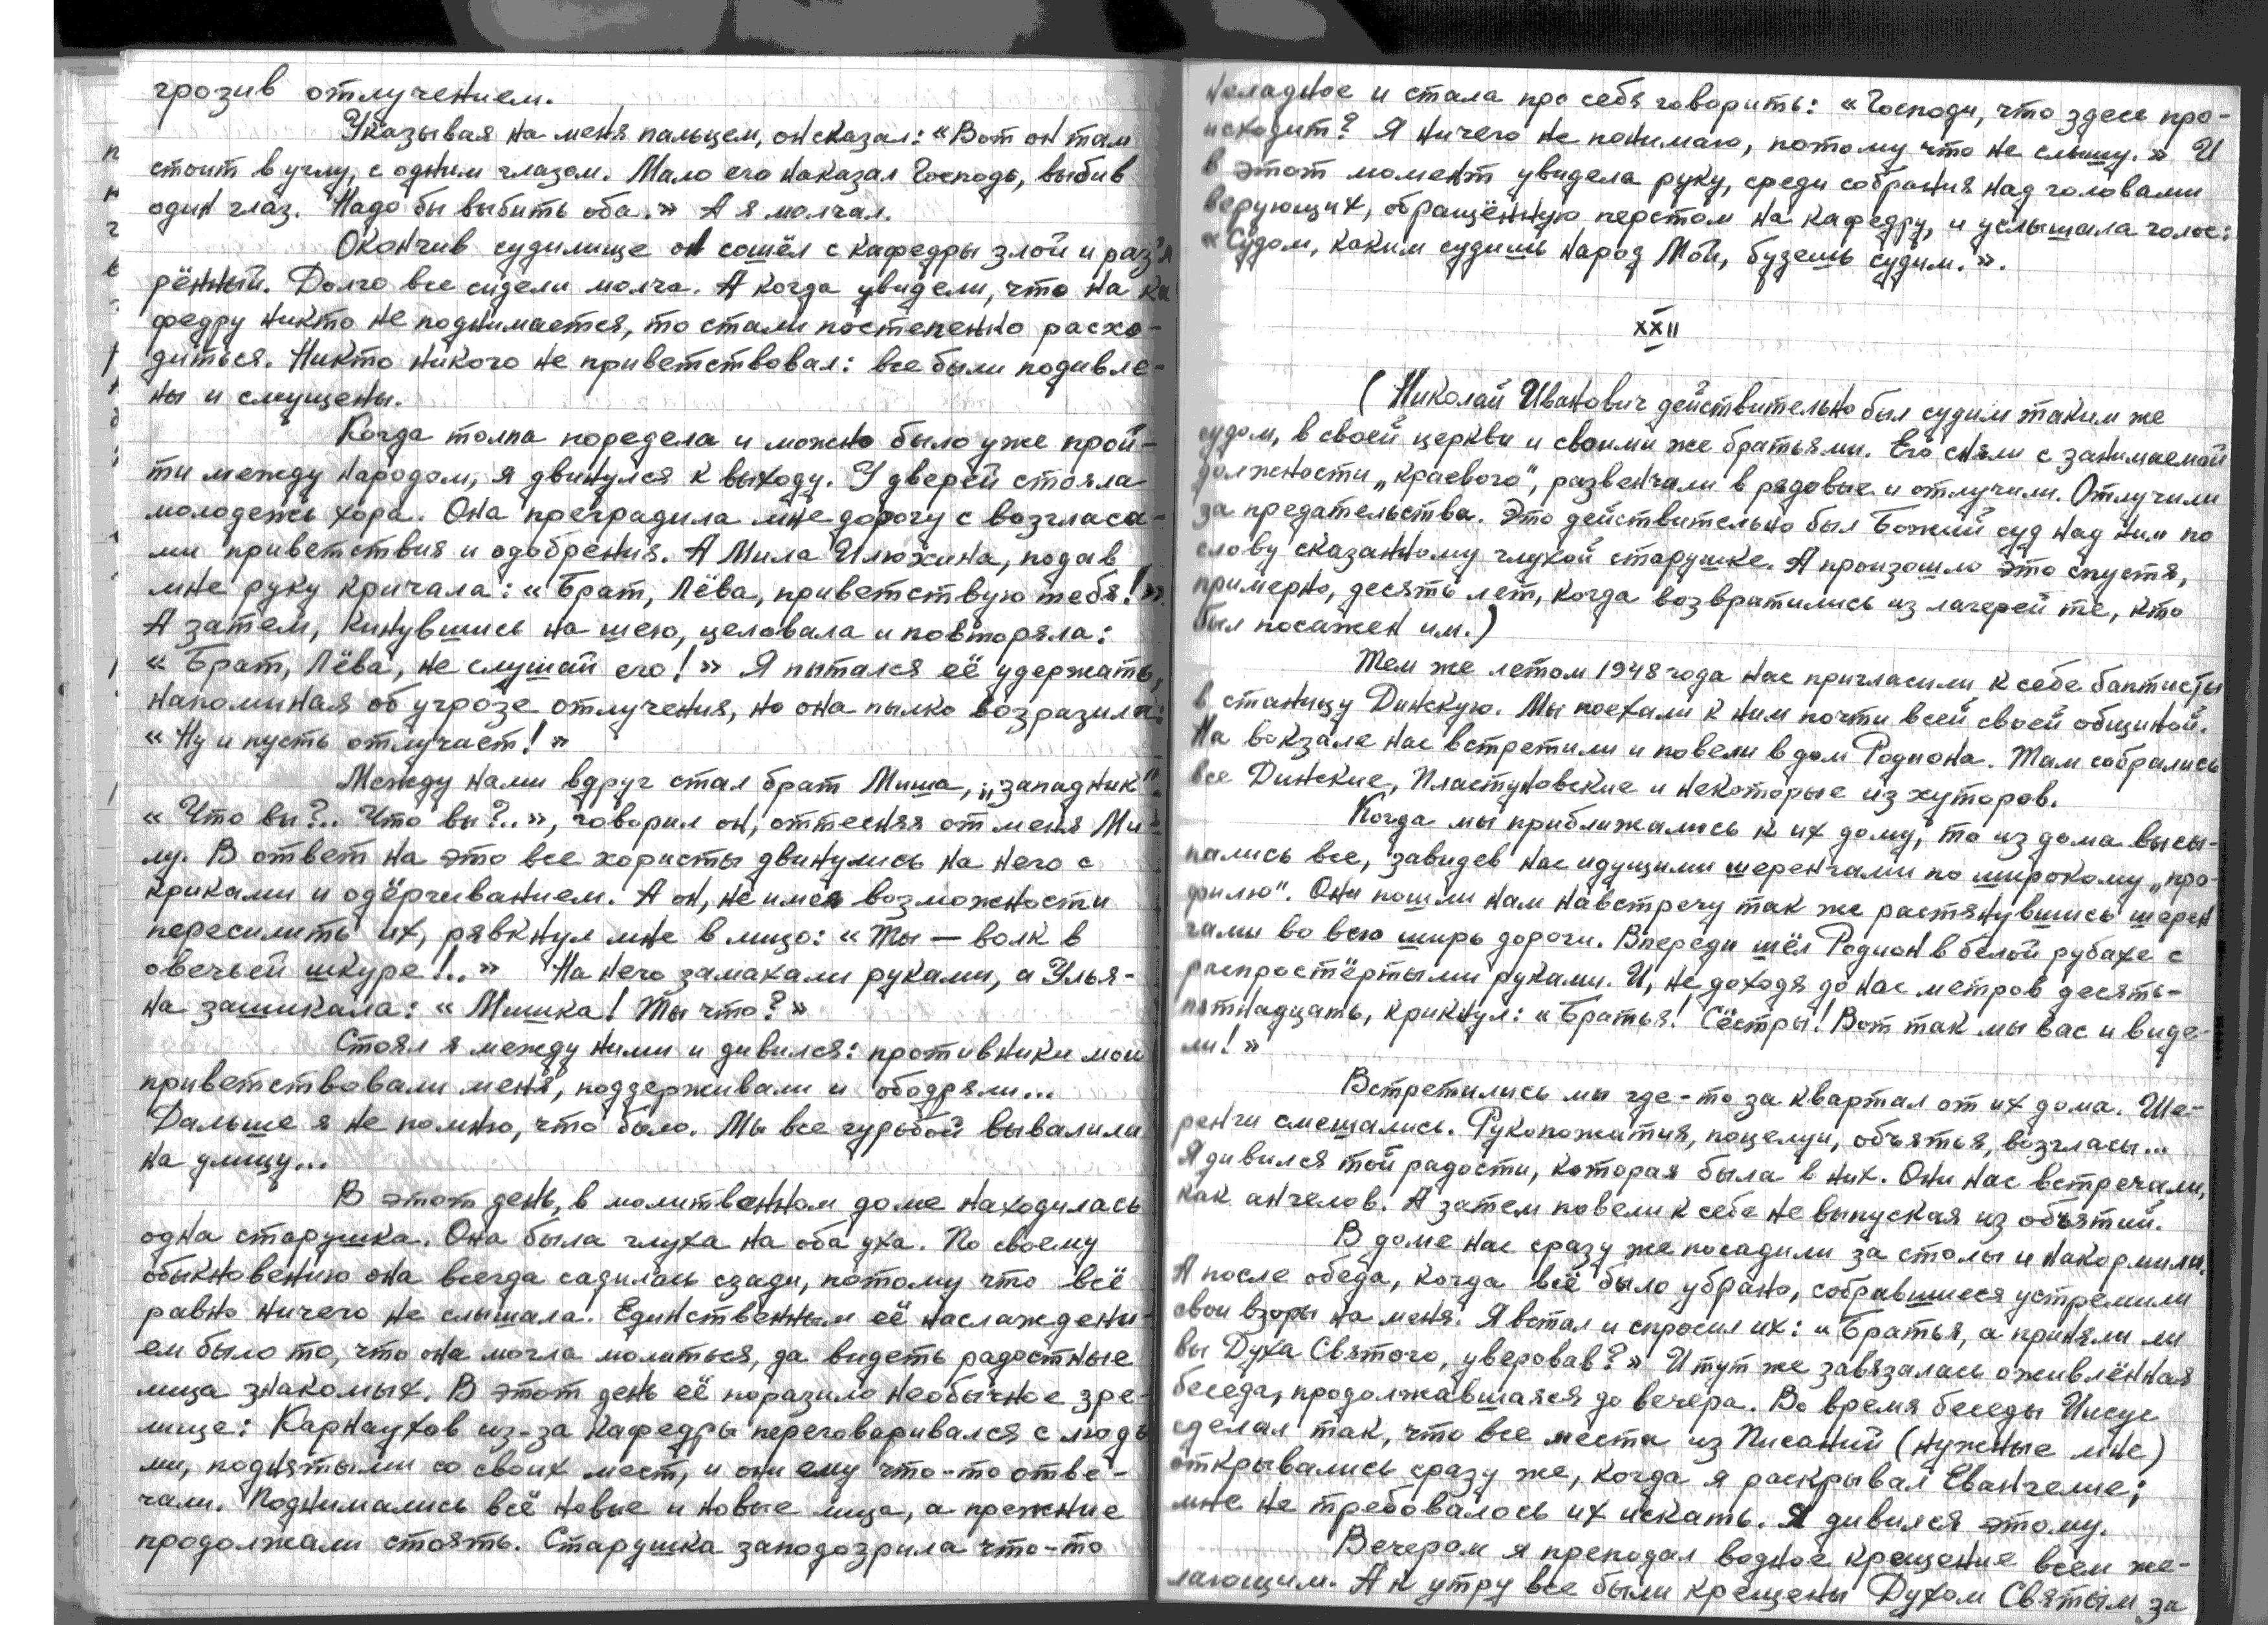 грозив отлучением.
Указывая на меня пальцем, он сказал: «Вот он там
стоит в углу, с одним глазом. Мало его наказал Господь, выбив
один глаз. Надо бы выбить оба.» А я молчал.
Окончив судилище он сошёл с кафедры злой и разъя
рённый. Долго все сидели молча. А когда увидели, что на ка
федру никто не поднимается, то стали постепенно расхо-
диться. Никто никого не приветствовал: все были подавле-
ны и смущены.
Когда толпа поредела и можно было уже прой-
ти между народом, я двинулся к выходу. У дверей стояла
молодежь хора. Она преградила мне дорогу с возгласа-
ми приветствия и одобрения. А Мила Илюхина, подав
мне руку кричала: «Брат, Лёва, приветствую тебя!».
А затем, кинувшись на шею, целовала и повторяла:
«Брат, Лёва, не слушай его!» Я пытался её удержать,
напоминая об угрозе отлучения, но она пылко возразила:
«Ну и пусть отлучает!»
Между нами вдруг стал брат Миша, „западник“
«Что вы?.. Что вы?..», говорил он, оттесняя от меня Ми-
лу. В ответ на это все хористы двинулись на него с
криками и одёргиванием. А он, не имея возможности
пересилить их, рявкнул мне в лицо: «Ты — волк в
овечьей шкуре!..» На него замахали руками, а Улья-
на зашикала: «Мишка! Ты что?»
Стоял я между ними и дивился: противники мои
приветствовали меня, поддерживали и ободряли...
Дальше я не помню, что было. Мы все гурьбой вывалили
на улицу...
В этот день, в молитвенном доме находилась
одна старушка. Она была глуха на оба уха. По своему
обыкновению она всегда садилась сзади, потому что всё
равно ничего не слышала. Единственным её наслаждени-
ем было то, что она могла молиться, да видеть радостные
лица знакомых. В этот день её поразило необычное зре-
лище: Карнаухов из-за кафедры переговаривался с людь
ми, поднятыми со своих мест, и они ему что-то отве-
чали. Поднимались всё новые и новые лица, а прежние
продолжали стоять. Старушка заподозрила что-то
неладное и стала про себя говорить: «Господи, что здесь про-
исходит? Я ничего не понимаю, потому что не слышу.» И
в этот момент увидела руку, среди собрания над головами
верующих, обращённую перстом на кафедру, и услышала голос:
«Судом, каким судишь народ Мой, будешь судим.».
XXII
(Николай Иванович действительно был судим таким же
судом, в своей церкви и своими же братьями. Его сняли с занимаемой
должности „краевого“, развенчали в рядовые и отлучили. Отлучили
за предательства. Это действительно был Божий суд над ним по
слову сказанному глухой старушке. А произошло это спустя,
примерно, десять лет, когда возвратились из лагерей те, кто
был посажен им.)
Тем же летом 1948 года нас пригласили к себе баптисты
в станицу Динскую. Мы поехали к ним почти всей своей общиной.
На вокзале нас встретили и повели в дом Родиона. Там собрались
все Динские, Пластуновские и некоторые из хуторов.
Когда мы приближались к их дому, то из дома высы-
пались все, завидев нас идущими шеренгами по широкому „про-
филю“. Они пошли нам навстречу так же растянувшись шерен
гами во всю ширь дороги. Впереди шёл Родион в белой рубахе с
распростёртыми руками. И, не доходя до нас метров десять-
пятнадцать, крикнул: «Братья! Сёстры! Вот так мы вас и виде-
ли!»
Встретились мы где-то за квартал от их дома. Ше-
ренги смешались. Рукопожатия, поцелуи, объятья, возгласы...
Я дивился той радости, которая была в них. Они нас встречали,
как ангелов. А затем повели к себе не выпуская из объятий.
В доме нас сразу же посадили за столы и накормили.
А после обеда, когда всё было убрано, собравшиеся устремили
свои взоры на меня. Я встал и спросил их: «Братья, а приняли ли
вы Духа Святого, уверовав?» И тут же завязалась оживлённая
беседа, продолжавшаяся до вечера. Во время беседы Иисус
сделал так, что все места из Писаний (нужные мне)
открывались сразу же, когда я раскрывал Евангелие;
мне не требовалось их искать. Я дивился этому.
Вечером я преподал водное крещение всем же-
лающим. А к утру все были крещены Духом Святым за